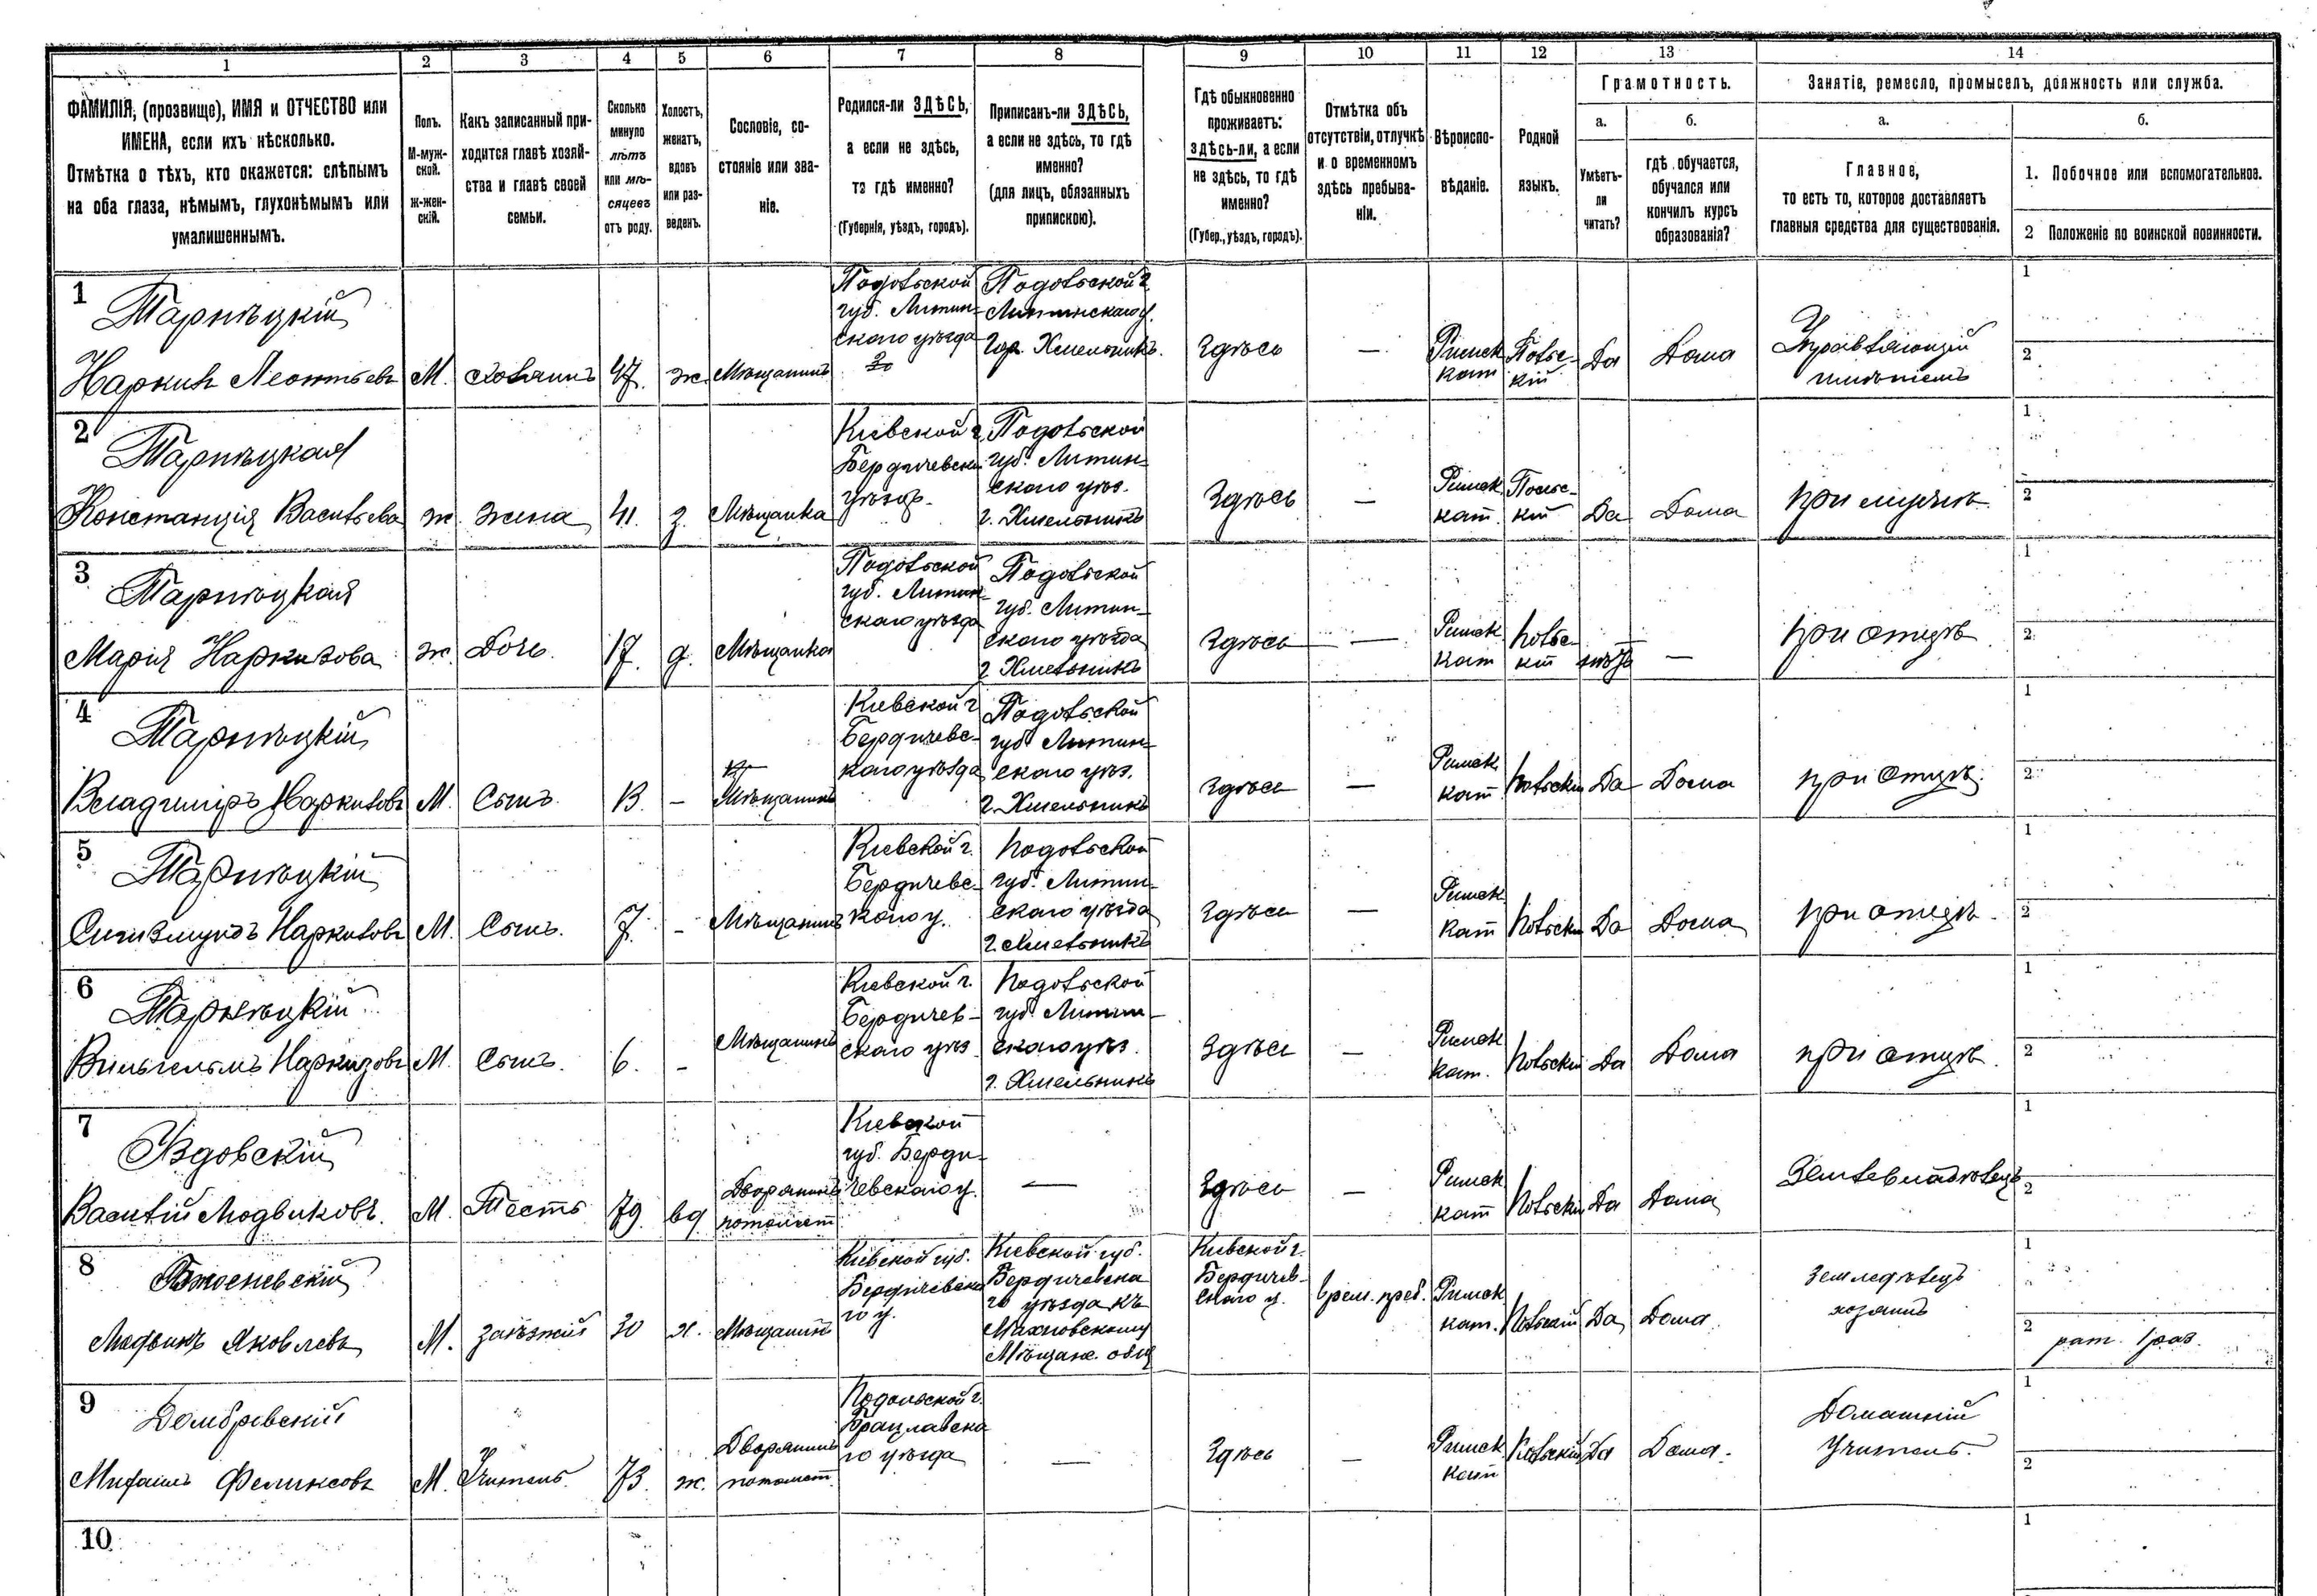 1 2 3 4 5 6 7 8 9 10 11 12 13 14
ФАМИЛІЯ, (прозвище), ИМЯ и ОТЧЕСТВО или
ИМЕНА, если ихъ нѣсколько.
Отмѣтка о тѣхъ, кто окажется: слѣпымъ
на оба глаза, нѣмымъ, глухонѣмымъ или
умалишеннымъ.
Полъ.
М-муж-
ской.
ж-жен-
скій.
Какъ записанный при-
ходится главѣ хозяй-
ства и главѣ своей
семьи.
Сколько
минуло
лѣтъ
или мѣ-
сяцевъ
отъ роду.
Холостъ,
женатъ,
вдовъ
или раз-
веденъ.
Сословіе, со-
стояніе или зва-
ніе.
Родился-ли ЗДѢСЬ,
а если не здѣсь,
то гдѣ именно?
(Губернія, уѣздъ, городъ).
Приписанъ-ли ЗДѢСЬ,
а если не здѣсь, то гдѣ
именно?
(для лицъ, обязанныхъ
припискою).
Гдѣ обыкновенно
проживаетъ:
здѣсь-ли, а если
не здѣсь, то гдѣ
именно?
(Губер., уѣздъ, городъ).
Отмѣтка объ
отсутствіи, отлучкѣ
и о временномъ
здѣсь пребыва-
ніи.
Вѣроиспо-
вѣданіе.
Родной
языкъ.
Грамотность.
а.
Умѣетъ-
ли
читать?
б.
гдѣ обучается,
обучался или
кончилъ курсъ
образованія?
Занятіе, ремесло, промыселъ, должность или служба.
а.
Главное,
то есть то, которое доставляетъ
главныя средства для существованія.
б.
1. Побочное или вспомогательное.
2 Положеніе по воинской повинности.
1
Тарнѣцкій
Наркизъ Леонтьевъ
М.
хозяинъ
47.
ж.
Мѣщанинъ
Подольской
губ. Литин-
скаго уѣзда
Подольской г.
Литинскаго у.
гор. Хмельникъ.
Здѣсь
—
Римск
кат
Польс-
кій
Да
Дома
Управляющій
имѣніемъ
1
2
2
Тарнѣцкая
Констанція Васильева
ж
жена
41.
з.
Мѣщанка
Кіевской г.
Бердичевск.
уѣзда.
Подольской
губ. Литин-
скаго уѣз.
г. Хмельникъ
Здѣсь
—
Римск.
кат.
Польс-
кій
Да
Дома
при мужѣ
1
2
3
Тарнѣцкая
Марія Наркизова
ж.
Дочь.
17.
д.
Мѣщанка
Подольской
губ. Литин-
скаго уѣзда
Подольской
губ. Литин-
скаго уѣзда
г. Хмельникъ
Здѣсь
—
Римск
кат
польс-
кій
—
при отцѣ
1
2
4
Тарнѣцкій
Владиміръ Наркизовъ
М.
Сынъ.
13.
-
Мѣщанинъ
Кіевской г
Бердичевс-
каго уѣзда
Подольской
губ Литин-
скаго уѣз.
г. Хмельникъ
Здѣсь
—
Римск.
кат.
польскій
Да
Дома
при отцѣ.
1
2
5
Тарнѣцкій
Сигизмундъ Наркизовъ
М.
Сынъ.
7.
-
Мѣщанинъ
Кіевской г.
Бердичевс-
каго у.
подольской
губ. Литин-
скаго уѣзда
г. Хмельникъ
Здѣсь
—
Римск
кат
польскій
Да
Дома
при отцѣ.
1
2
6
Тарнѣцкій
Вильгельмъ Наркизовъ
М.
Сынъ.
6.
-
Мѣщанинъ
Кіевской г.
Бердичев-
скаго уѣз
подольской
губ. Литин-
скаго уѣз.
г. Хмельникъ
Здѣсь
—
Римск
кат.
польскій
Да
Дома
при отцѣ.
1
2
7
Яздовскій
Василій Людвиковъ.
М.
Тесть
79.
вд
Дворянинъ
потомст
Кіевской
губ. Берди-
чевскаго у.
—
Здѣсь
—
Римск
кат
польскій
Да
Дома
Землевладѣлецъ
1
2
8
Людвикъ Яковлевъ
М.
заѣзжій
30
х.
Мѣщанинъ
Кіевской губ.
Бердичевска
го у.
Кіевской губ.
Бердичевска
го уѣзда къ
Махновскому
Мѣщане. общ
Кіевской г.
Бердичев-
скаго у.
врем. преб.
Римск
кат.
польскій
Да
Дома.
Земледѣлецъ
хозяинъ
1
2
рат. 1 раз.
9
Домбровскій
Михаилъ Феликсовъ
М.
Учитель.
73.
ж.
Дворянинъ
потомст.
Подольской г.
Брацлавска
го уѣзда
—
Здѣсь
—
Римск
кат
польскій
Да
Дома.
Домашній
Учитель.
1
2
10
1